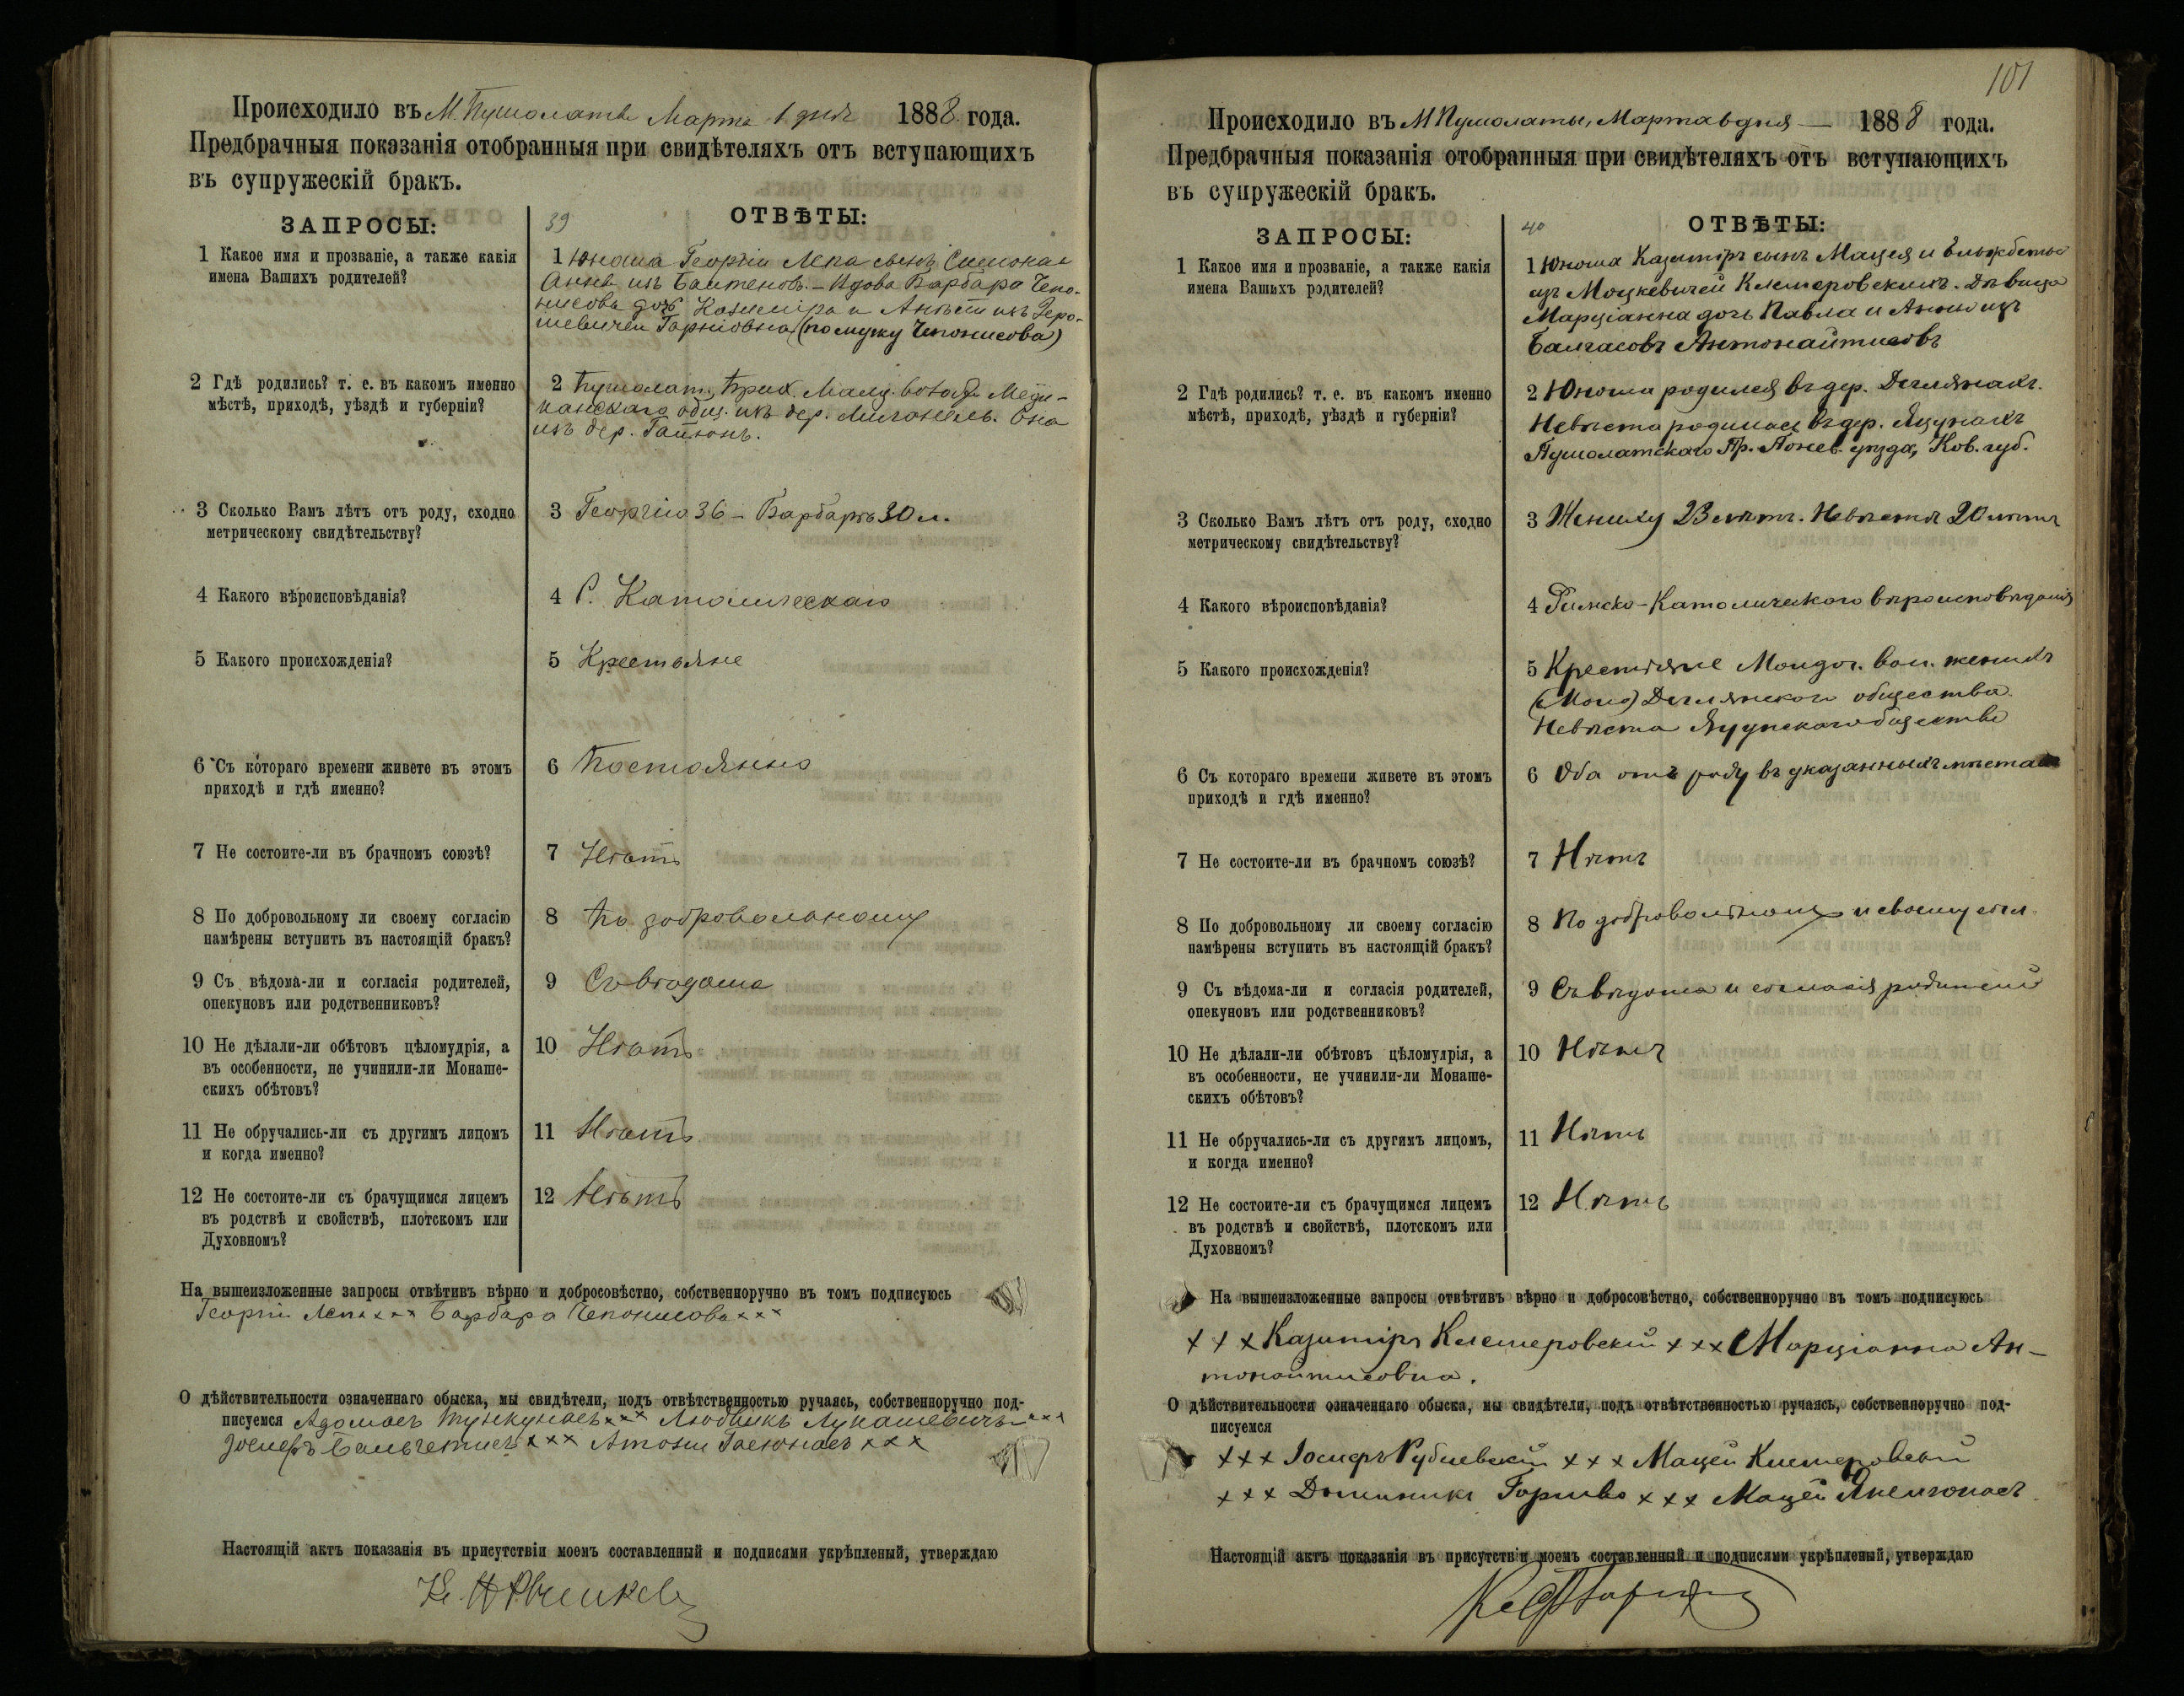 Происходило въ М. Пушолатѣ Марта 1 дня 1888 года.
Предбрачныя показанія отобранныя при свидѣтеляхъ отъ вступающихъ
въ супружескій бракъ.
ЗАПРОСЫ:
39
ОТВѢТЫ:
1 Какое имя и прозваніе, а также какія
имена Вашихъ родителей?
1 Юноша Георгій Лепа сынъ Симона и
Анны изъ  — Вдова Барбара Чепо-
нисова дочь Казиміра и  изъ
 (по мужу Чепонисова)
2 Гдѣ родились? т. е. въ какомъ именно
мѣстѣ, приходѣ, уѣздѣ и губерніи?
2 Пушолат. Прих.
общ. изъ дер.  Она
изъ дер.
3 Сколько Вамъ лѣтъ отъ роду, сходно
метрическому свидѣтельству?
3 Георгію 36 — Барбарѣ 30 л.
4 Какого вѣроисповѣданія?
4 Р. Католическаго
5 Какого происхожденія?
5 Крестьяне
6 Съ котораго времени живете въ этомъ
приходѣ и гдѣ именно?
6 Постоянно
7 Не состоите-ли въ брачномъ союзѣ?
7 Нѣтъ
8 По добровольному ли своему согласію
намѣрены вступить въ настоящій бракъ?
8 По добровольному
9 Съ вѣдома-ли и согласія родителей,
опекуновъ или родственниковъ?
9 Съ вѣдома
10 Не дѣлали-ли обѣтовъ цѣломудрія, а
въ особенности, не учинили-ли Монаше-
скихъ обѣтовъ?
10 Нѣтъ
11 Не обручались-ли съ другимъ лицомъ
и когда именно?
11 Нѣтъ
12 Не состоите-ли съ брачущимся лицемъ
въ родствѣ и свойствѣ, плотскомъ или
Духовномъ?
12 Нѣтъ
На вышеизложенные запросы отвѣтивъ вѣрно и добросовѣстно, собственноручно въ томъ подписуюсь
Георгій Лепа ××× Барбара Чепонисова ×××
О дѣйствительности означеннаго обыска, мы свидѣтели, подъ отвѣтственностью ручаясь, собственноручно под-
писуемся Адомасъ Тункунасъ ××× Людвикъ Лукашевичъ ×××
Іосифъ  ×××  ×××
Настоящій актъ показанія въ присутствіи моемъ составленный и подписями укрѣпленый, утверждаю
101
Происходило въ М Пушолаты, Марта 6 дня — 1888 года.
Предбрачныя показанія отобранныя при свидѣтеляхъ отъ вступающихъ
въ супружескій бракъ.
ЗАПРОСЫ:
40
ОТВѢТЫ:
1 Какое имя и прозваніе, а также какія
имена Вашихъ родителей?
1 Юноша Казиміръ сынъ Мацея и Эльжбеты
изъ Моцкевичей Клемеровскихъ. Дѣвица
Марціанна дочь Павла и Анны изъ
Балчасовъ Антонайтисовъ
2 Гдѣ родились? т. е. въ какомъ именно
мѣстѣ, приходѣ, уѣздѣ и губерніи?
2 Юноша родился въ дер. Деглянахъ.
Невѣста родилась въ дер. Яцунахъ
Пушолатскаго Пр. Понев. уѣзда, Ков. губ.
3 Сколько Вамъ лѣтъ отъ роду, сходно
метрическому свидѣтельству?
3 Жениху 23 лѣтъ. Невѣстѣ 20 лѣтъ
4 Какого вѣроисповѣданія?
4 Римско-Католическаго вѣроисповѣданія
5 Какого происхожденія?
5 Крестьяне  вол. женихъ
Деглянскаго общества.
Невѣста Яцунскаго общества
6 Съ котораго времени живете въ этомъ
приходѣ и гдѣ именно?
6 Оба отъ роду въ указанныхъ мѣстахъ
7 Не состоите-ли въ брачномъ союзѣ?
7 Нѣтъ
8 По добровольному ли своему согласію
намѣрены вступить въ настоящій бракъ?
8 По добровольному и своему согл.
9 Съ вѣдома-ли и согласія родителей,
опекуновъ или родственниковъ?
9 Съ вѣдома и согласія родителей
10 Не дѣлали-ли обѣтовъ цѣломудрія, а
въ особенности, не учинили-ли Монаше-
скихъ обѣтовъ?
10 Нѣтъ
11 Не обручались-ли съ другимъ лицомъ,
и когда именно?
11 Нѣтъ
12 Не состоите-ли съ брачущимся лицемъ
въ родствѣ и свойствѣ, плотскомъ или
Духовномъ?
12 Нѣтъ
На вышеизложенные запросы отвѣтивъ вѣрно и добросовѣстно, собственноручно въ томъ подписуюсь
××× Казиміръ Клемеровскій ××× Марціанна Ан-
тонайтисовна.
О дѣйствительности означеннаго обыска, мы свидѣтели, подъ отвѣтственностью ручаясь, собственноручно под-
писуемся
××× Іосифъ Рубшевскій ××× Мацей Клемеровскій
××× Доминикъ  ××× Мацей
Настоящій актъ показанія въ присутствіи моемъ составленный и подписями укрѣпленый, утверждаю